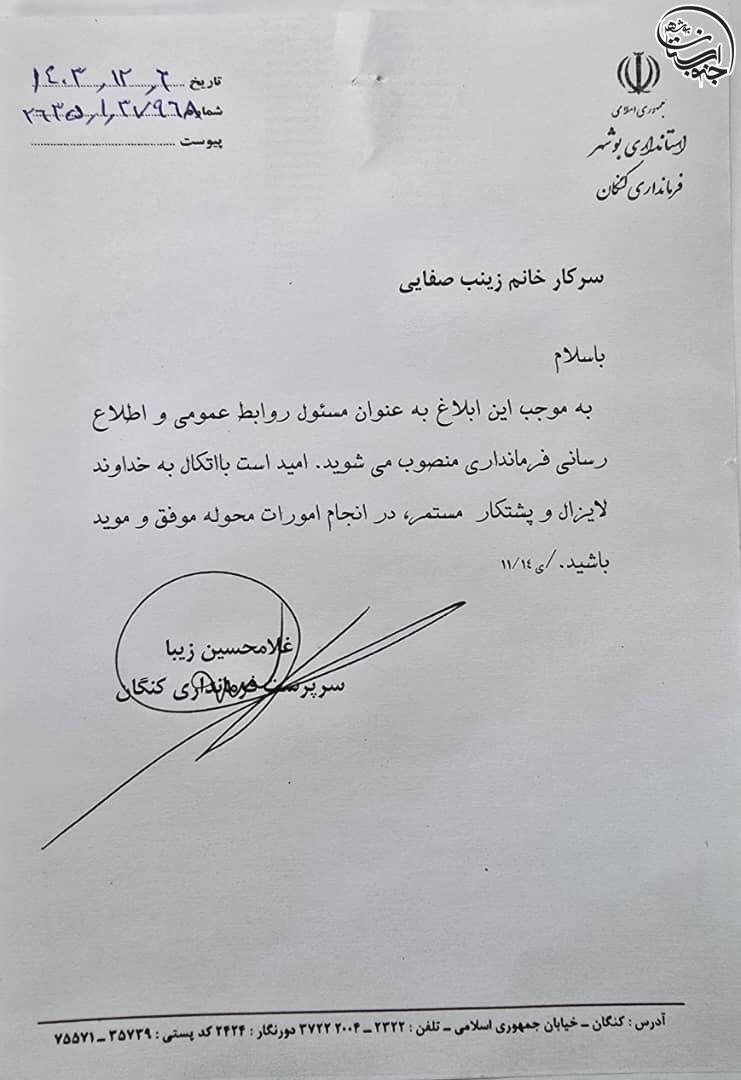 جنوبستان بوشهر
جمهوری اسلامی
استانداری بوشهر
فرمانداری کنگان
تاریخ ۱۴۰۳،۱۲،۶
شماره
پیوست
سرکار خانم زینب صفایی
باسلام
به موجب این ابلاغ به عنوان مسئول روابط عمومی و اطلاع
رسانی فرمانداری منصوب می شوید. امید است بااتکال به خداوند
لایزال و پشتکار مستمر، در انجام امورات محوله موفق و موید
باشید. /ی ۱۱/۱۴
غلامحسین زیبا
سرپرست فرمانداری کنگان
آدرس : کنگان ـ خیابان جمهوری اسلامی ـ تلفن : ۲۳۲۲ ـ ۲۰۰۴ ۳۷۲۲ دورنگار : ۲۴۲۴ کد پستی : ۳۵۷۳۹ ـ ۷۵۵۷۱